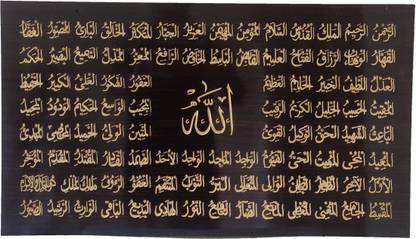 الرحمن الرحيم الملك القدوس السلام المؤمن المهيمن العزيز الجبار المتكبر الخالق البارئ المصور الغفار
القهار الوهاب الرزاق الفتاح العليم القابض الباسط الخافض الرافع المعز المذل السميع البصير الحكم
العدل اللطيف الخبير الحليم العظيم الغفور الشكور العلي الكبير الحفيظ
الله
المقيت الحسيب الجليل الكريم الرقيب المجيب الواسع الحكيم الودود المجيد
الباعث الشهيد الحق الوكيل القوي المتين الولي الحميد المحصي المبدئ
المعيد المحيي المميت الحي القيوم الواجد الماجد الواحد الاحد الصمد القادر المقتدر المقدم المؤخر
الأول الآخر الظاهر الباطن الوالي المتعالي البر التواب المنتقم العفو الرؤوف مالك الملك ذو الجلال والإكرام
المقسط الجامع الغني المغني المانع الضار النافع النور الهادي البديع الباقي الوارث الرشيد الصبور